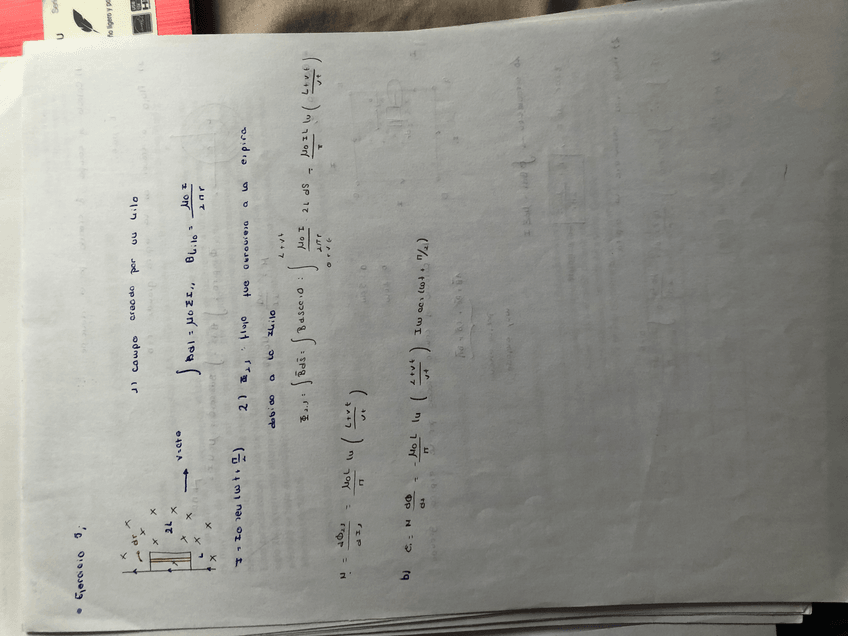 • Ejercicio 5:
dr
2L
L
v=cte
1) campo creado por un hilo
∫ B dl = μ0 Σ I,, B hilo = μ0 I / 2πr
I = I0 sen (ωt + π/2) 2) Φ21 : flujo que atraviesa a la espira
debido a la I hilo
Φ21 : ∫ B ds : ∫ B ds cos 0 : ∫ 0+vt L+vt μ0 I / 2πr 2L dS = μ0 I L / π ln ( L+vt / vt )
M = dΦ21 / dI1 = μ0 L / π ln ( L+vt / vt )
b) Ei = M dΦ / dt = - μ0 L / π ln ( L+vt / vt ) I ω cos (ωt + π/2)